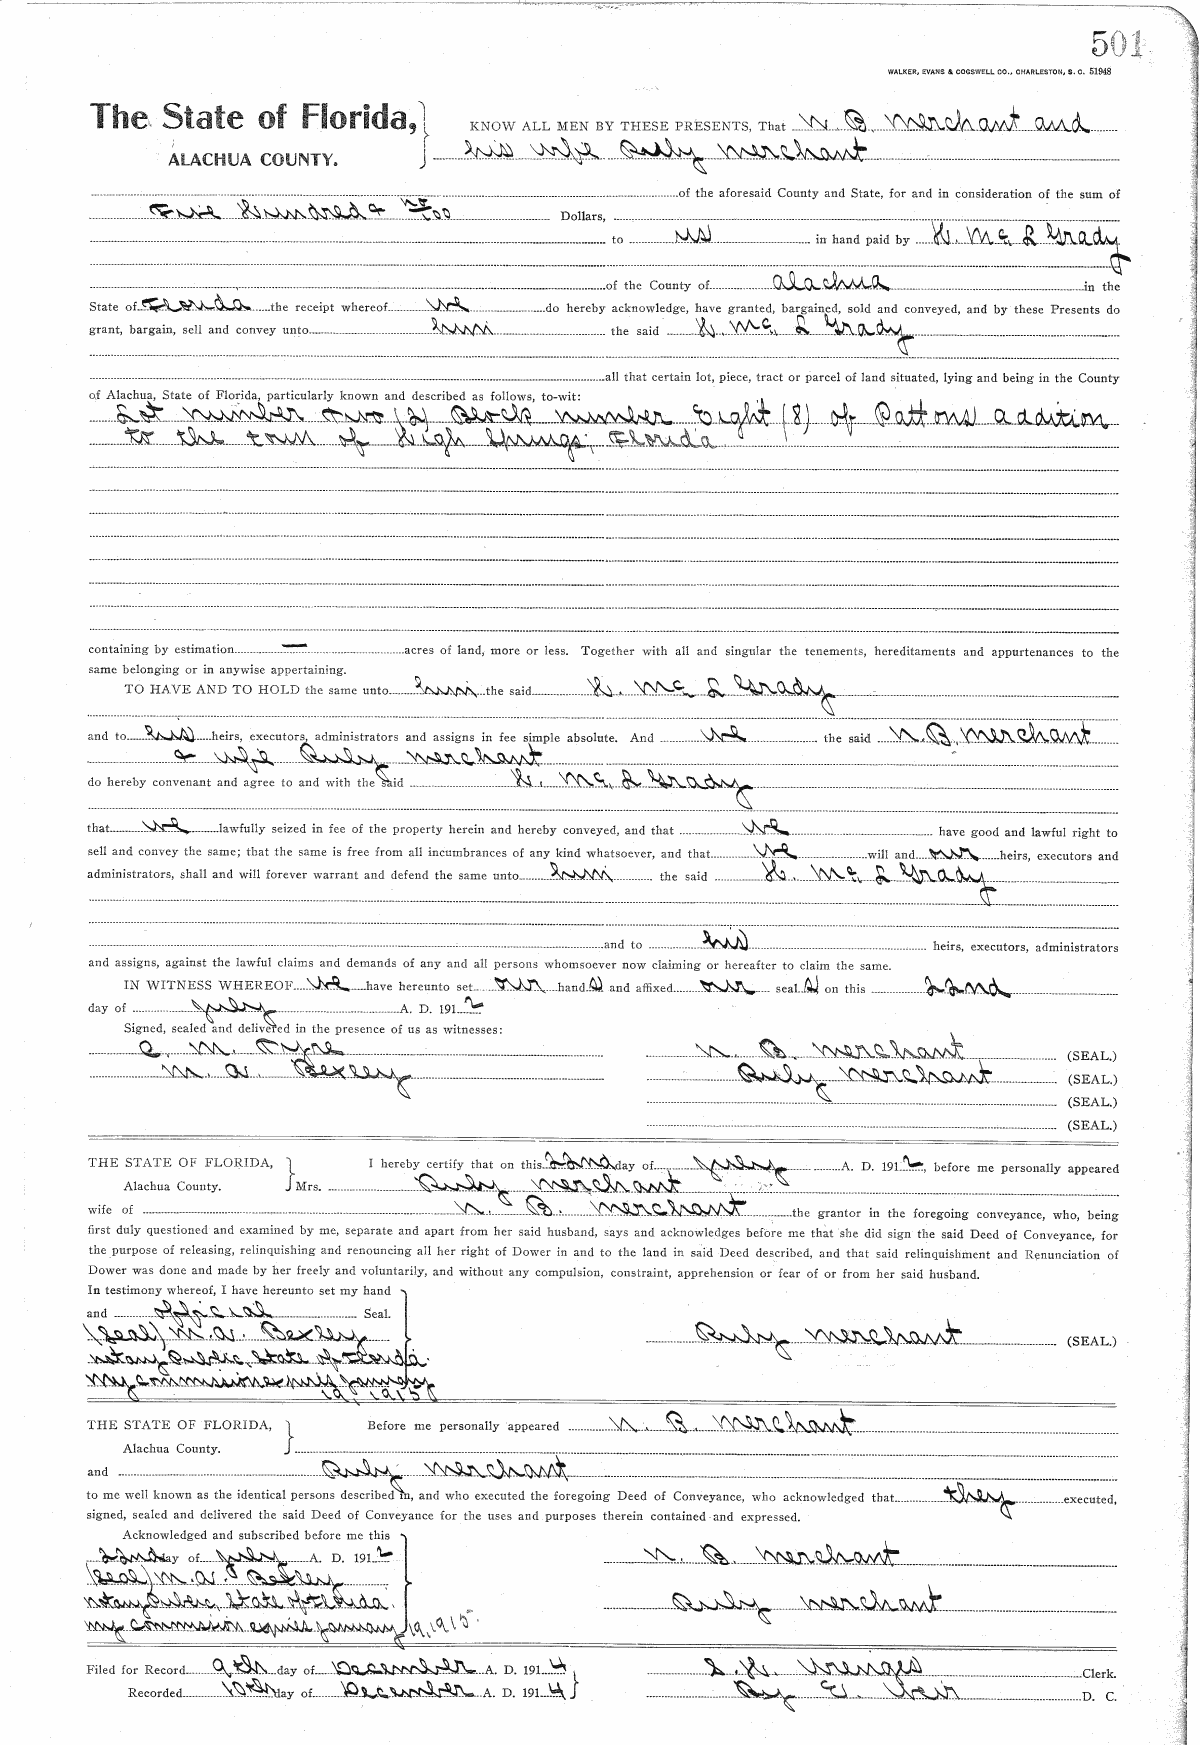 501
WALKER, EVANS & COGSWELL CO., CHARLESTON, S. C. 51948
The State of Florida,
ALACHUA COUNTY.
KNOW ALL MEN BY THESE PRESENTS, That N. B. Merchant and
his wife Ruby Merchant
of the aforesaid County and State, for and in consideration of the sum of
Five Hundred & no/100 Dollars,
to us in hand paid by H. Mc. L Grady
of the County of Alachua in the
State of Florida the receipt whereof we do hereby acknowledge, have granted, bargained, sold and conveyed, and by these Presents do
grant, bargain, sell and convey unto him the said H. Mc. L Grady
all that certain lot, piece, tract or parcel of land situated, lying and being in the County
of Alachua, State of Florida, particularly known and described as follows, to-wit:
Lot number two (2) Block number Eight (8) of Pattons addition
to the town of High Springs, Florida
containing by estimation — acres of land, more or less. Together with all and singular the tenements, hereditaments and appurtenances to the
same belonging or in anywise appertaining.
TO HAVE AND TO HOLD the same unto him the said H. Mc. L Grady
and to his heirs, executors, administrators and assigns in fee simple absolute. And we the said N. B. Merchant
& wife Ruby Merchant
do hereby convenant and agree to and with the said H. Mc. L Grady
that we lawfully seized in fee of the property herein and hereby conveyed, and that we have good and lawful right to
sell and convey the same; that the same is free from all incumbrances of any kind whatsoever, and that we will and our heirs, executors and
administrators, shall and will forever warrant and defend the same unto him the said H. Mc. L Grady
and to his heirs, executors, administrators
and assigns, against the lawful claims and demands of any and all persons whomsoever now claiming or hereafter to claim the same.
IN WITNESS WHEREOF we have hereunto set our hands and affixed our seals on this 22nd
day of July A. D. 1912
Signed, sealed and delivered in the presence of us as witnesses:
C. M. Tyre N. B. Merchant (SEAL.)
M. A. Bexley Ruby Merchant (SEAL.)
(SEAL.)
(SEAL.)
THE STATE OF FLORIDA, I hereby certify that on this 22nd day of July A. D. 1912, before me personally appeared
Alachua County. Mrs. Ruby Merchant
wife of N. B. Merchant the grantor in the foregoing conveyance, who, being
first duly questioned and examined by me, separate and apart from her said husband, says and acknowledges before me that she did sign the said Deed of Conveyance, for
the purpose of releasing, relinquishing and renouncing all her right of Dower in and to the land in said Deed described, and that said relinquishment and Renunciation of
Dower was done and made by her freely and voluntarily, and without any compulsion, constraint, apprehension or fear of or from her said husband.
In testimony whereof, I have hereunto set my hand
and official Seal.
(Seal) M. A. Bexley Ruby Merchant (SEAL.)
Notary Public, State of Florida.
My commission expires January
19, 1915
THE STATE OF FLORIDA, Before me personally appeared N. B. Merchant
Alachua County.
and Ruby Merchant
to me well known as the identical persons described in, and who executed the foregoing Deed of Conveyance, who acknowledged that they executed,
signed, sealed and delivered the said Deed of Conveyance for the uses and purposes therein contained and expressed.
Acknowledged and subscribed before me this
22nd day of July A. D. 1912 N. B. Merchant
(Seal) M. A. Bexley
Notary Public, State of Florida. Ruby Merchant
My commission expires January 19, 1915.
Filed for Record 9th day of December A. D. 1914 S. H. Wienges Clerk.
Recorded 10th day of December A. D. 1914 By E. Weir D. C.